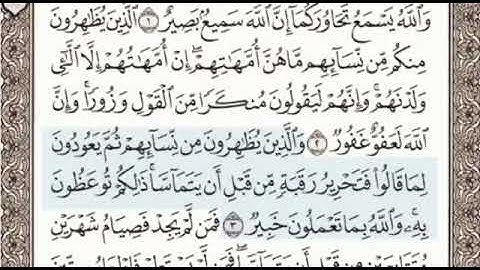 وَٱللَّهُ يَسۡمَعُ تَحَاوُرَكُمَآۚ إِنَّ ٱللَّهَ سَمِيعُۢ بَصِيرٌ ١ ٱلَّذِينَ يُظَٰهِرُونَ
مِنكُم مِّن نِّسَآئِهِم مَّا هُنَّ أُمَّهَٰتِهِمۡۖ إِنۡ أُمَّهَٰتُهُمۡ إِلَّا ٱلَّٰٓـِٔي
وَلَدۡنَهُمۡۚ وَإِنَّهُمۡ لَيَقُولُونَ مُنكَرٗا مِّنَ ٱلۡقَوۡلِ وَزُورٗاۚ وَإِنَّ
ٱللَّهَ لَعَفُوٌّ غَفُورٞ ٢ وَٱلَّذِينَ يُظَٰهِرُونَ مِن نِّسَآئِهِمۡ ثُمَّ يَعُودُونَ
لِمَا قَالُواْ فَتَحۡرِيرُ رَقَبَةٖ مِّن قَبۡلِ أَن يَتَمَآسَّاۚ ذَٰلِكُمۡ تُوعَظُونَ
بِهِۦۚ وَٱللَّهُ بِمَا تَعۡمَلُونَ خَبِيرٞ ٣ فَمَن لَّمۡ يَجِدۡ فَصِيَامُ شَهۡرَيۡنِ
مُتَتَابِعَيۡنِ مِن قَبۡلِ أَن يَتَمَآسَّاۖ فَمَن لَّمۡ يَسۡتَطِعۡ فَإِطۡعَامُ سِتِّينَ